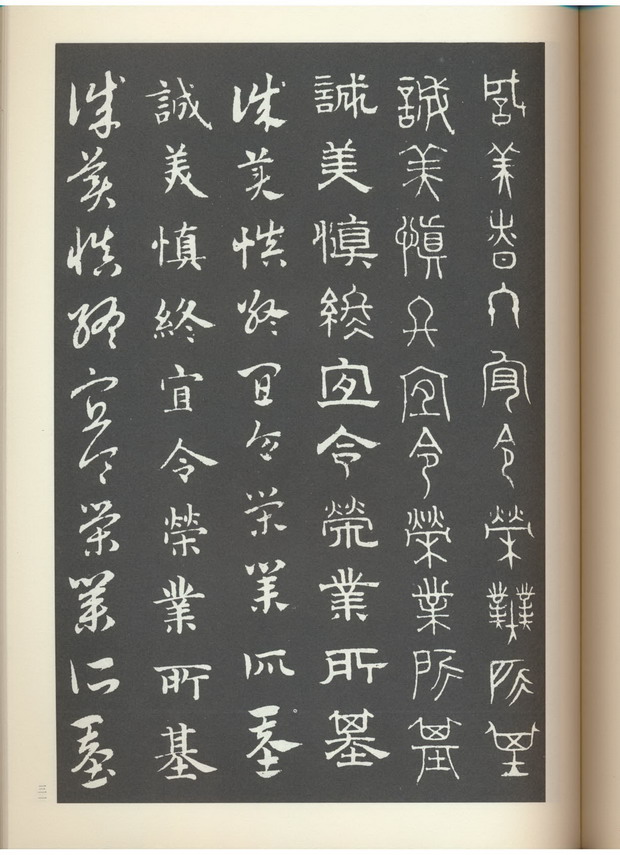 誠美慎終宜令榮業所基
誠美慎終宜令榮業所基
誠美慎終宜令榮業所基
誠美慎終宜令榮業所基
誠美慎終宜令榮業所基
誠美慎終宜令榮業所基
三一